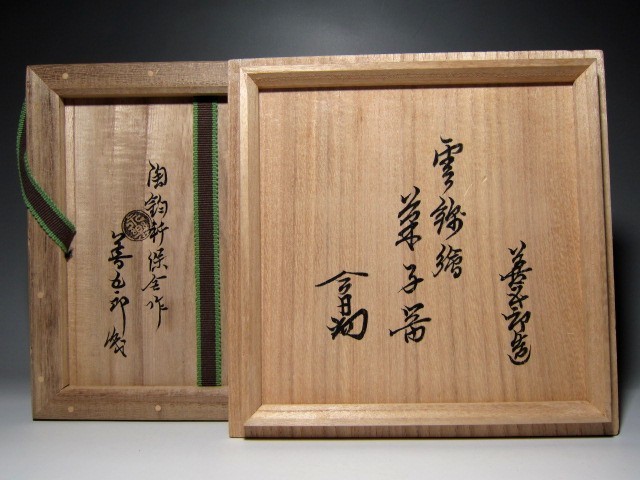 善五郎造
雲錦繪
菓子器
今日
陶鈞軒保全作
善五郎識